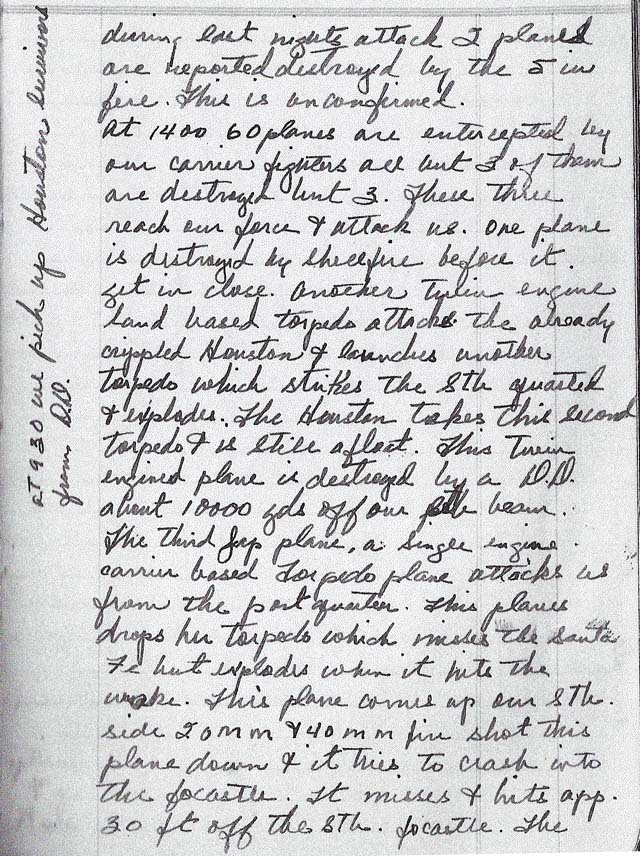 during last nights attack 2 planes
are reported destroyed by the 5 in
fire. This is unconfirmed.
at 1400 60 planes are entercepted by
our carrier fighters all but 3 of them
are destroyed but 3. These three
reach our force & attack us. One plane
is destroyed by shellfire before it
get in close. Another twin engine
land based torpedo attacks the already
crippled Houston & launches another
torpedo which strikes the Stb quarted
& explodes. The Houston takes this second
torpedo & is still afloat. This twin
engined plane is destroyed by a D.D.
about 10000 yds off our beam.
The third Jap plane, a single engine
carrier based Torpedo plane attacks us
from the port quarter. This planes
drops her torpedo which misses the Santa
Fe but explodes when it hits the
wake. This plane comes up our Stb.
side 20 mm & 40 mm fire shot this
plane down & it tries to crash into
the focastle. It misses & hits app.
30 ft off the Stb. focastle. The
at 930 we pick up Houston survivors
from D.D.